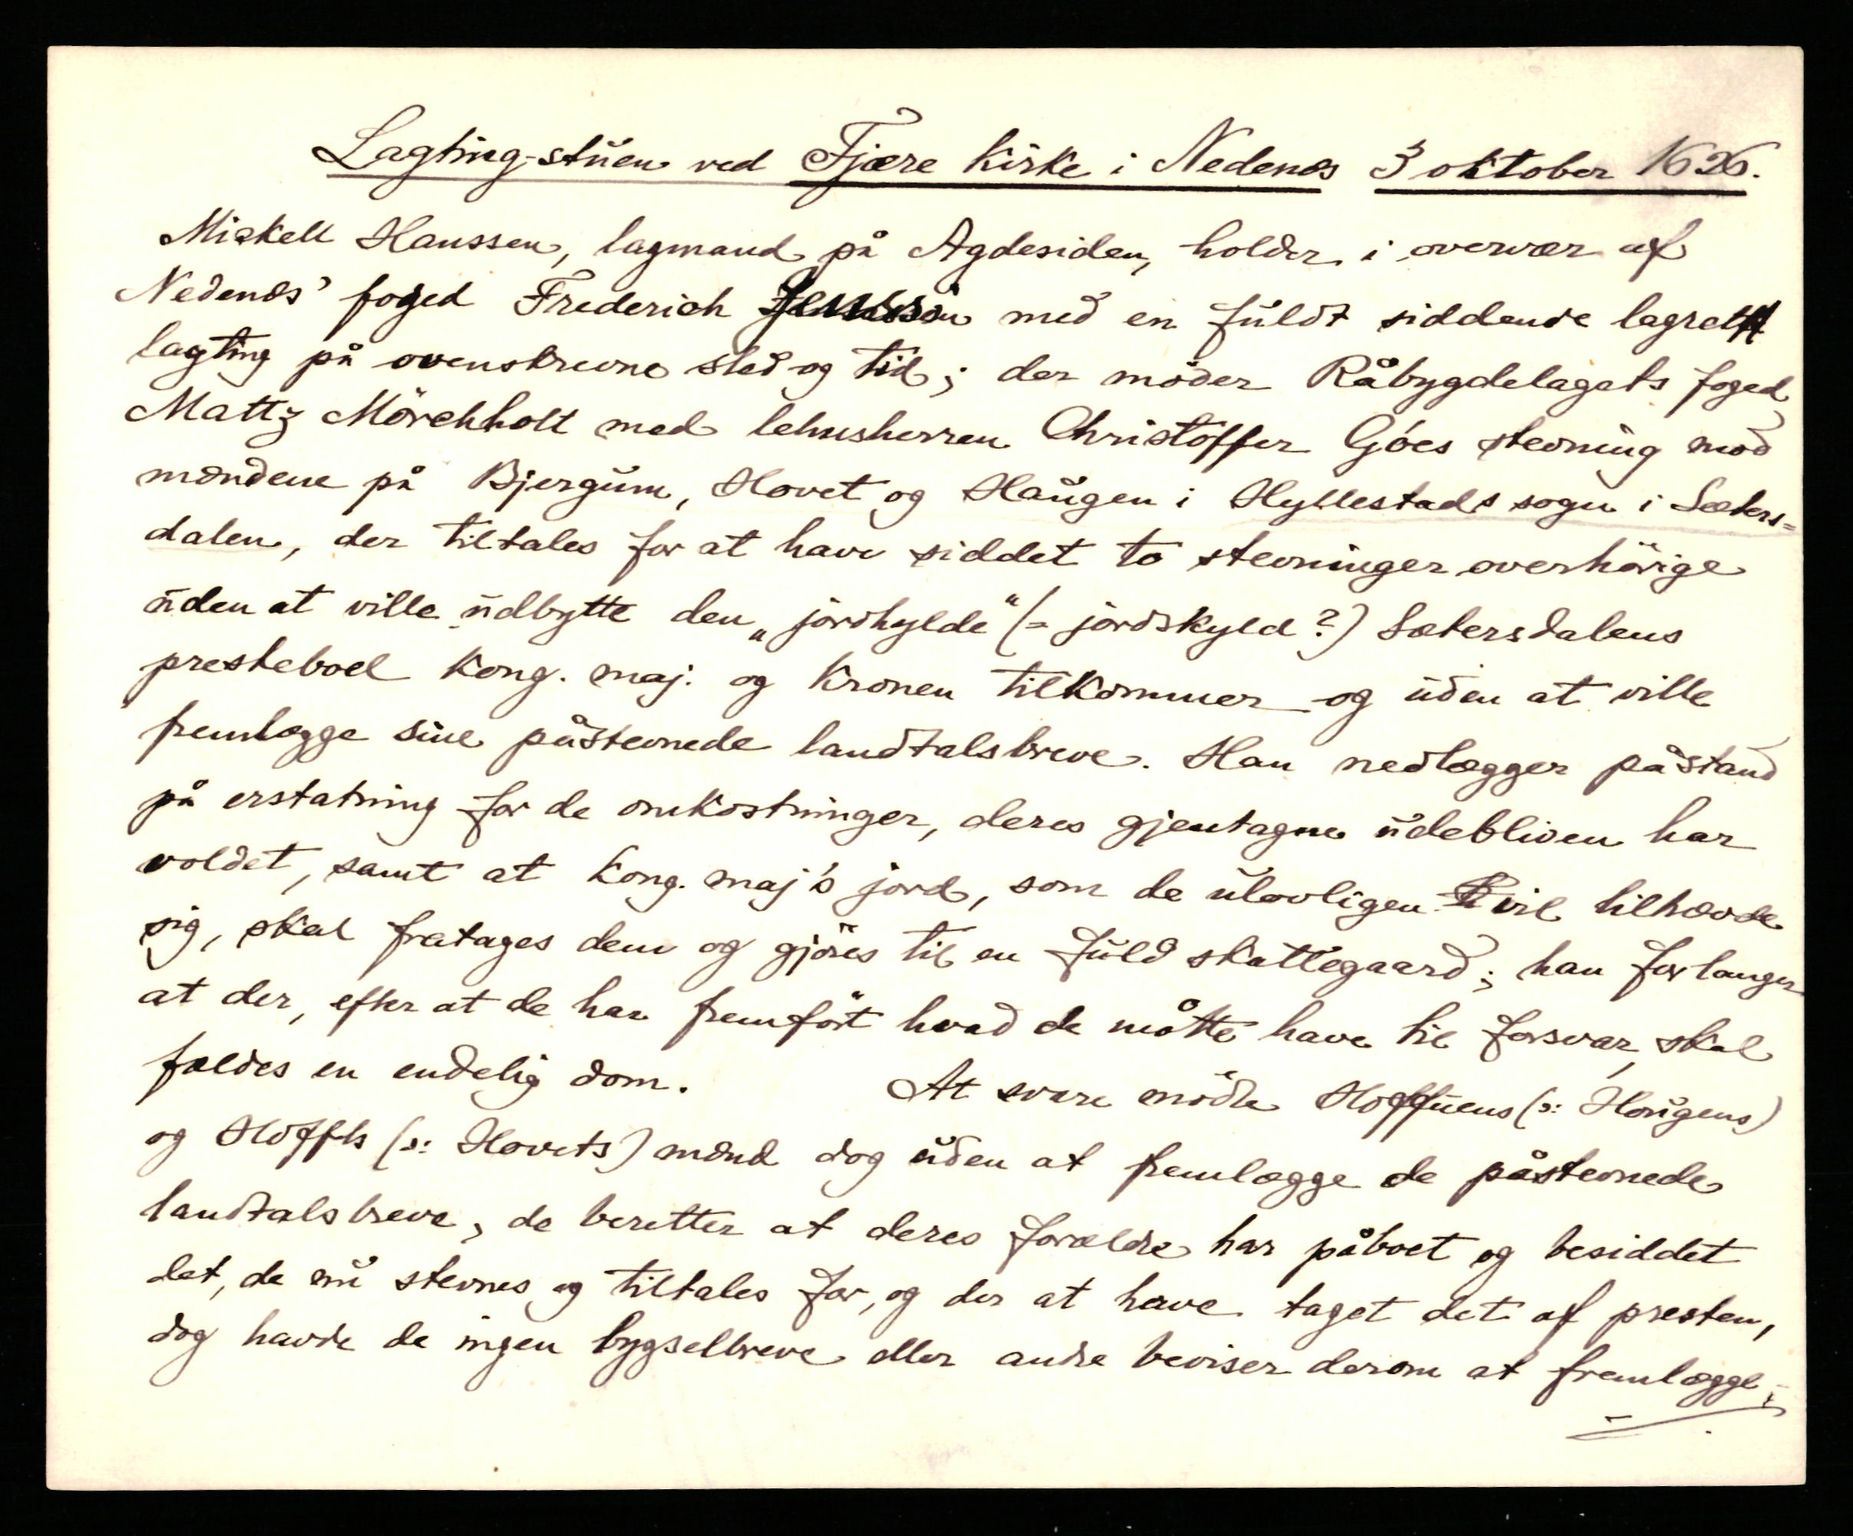 Lagting-stuen ved Fjære kirke i Nedenæs 3 oktober 1626.
Mickell Hanssen, lagmand på Agdesiden, holder i overvær af
Nedenæs' foged Frederich med en fuldt siddende lagrett
lagting på ovenskrevne sted og tid; der møder Råbygdelagets foged
Mattz Mörchholt med lehnsherren Christoffer Göes stevning mod
mændene på Bjergum, Hovet og Haugen i Hyllestads sogn i Sæters=
dalen, der tiltales for at have siddet to stevninger overhörige
uden at ville udbytte den „jordhylde“ (= jordskyld?) Sætersdalens
presteboel kong. maj. og kronen tilkommer og uden at ville
fremlægge sine påstevnede landtalsbreve. Han nedlægger påstand
på erstatning for de omkostninger, deres gjentagne udebliven har
voldet, samt at kong. maj's jord, som de ulovligen vil tilhævde
sig, skal fratages dem og gjöres til en fuld skattegaard; han forlanger
at der, efter at de har fremfört hvad de måtte have til forsvar, skal
fældes en endelig dom. At svare mödte Hoffuens (ɔ: Hougens)
og Hoffts (ɔ: Hovets) mænd dog uden at fremlægge de påstevnede
landtalsbreve; de beretter at deres forældre har påboet og besiddet
det, de nu stevnes og tiltales for, og der at have taget det af presten,
dog havde de ingen bygselbreve eller andre beviser derom at fremlægge;